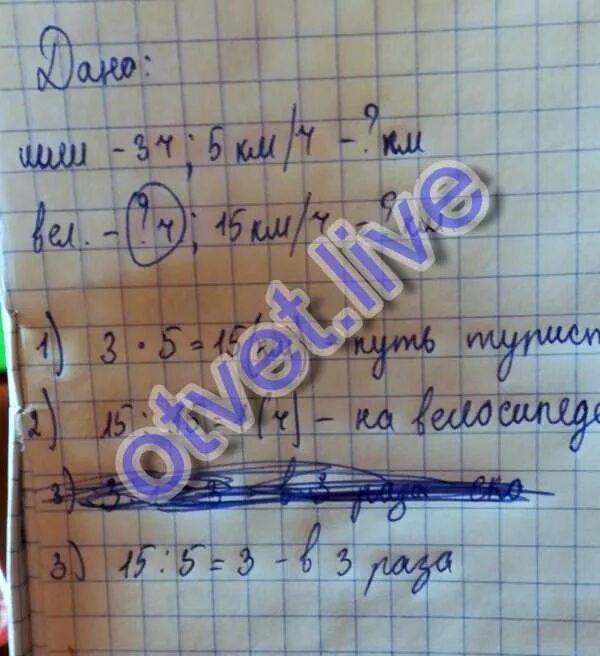 Дано:
шли - 3ч; 5 км/ч - ? км
вел. - ? ч; 15 км/ч - ? км
1) 3 · 5 = 15 (км) - путь турист
2) 15 : 15 = 1 (ч) - на велосипеде
3) 15 : 5 = 3 - в 3 раза
otvet.live